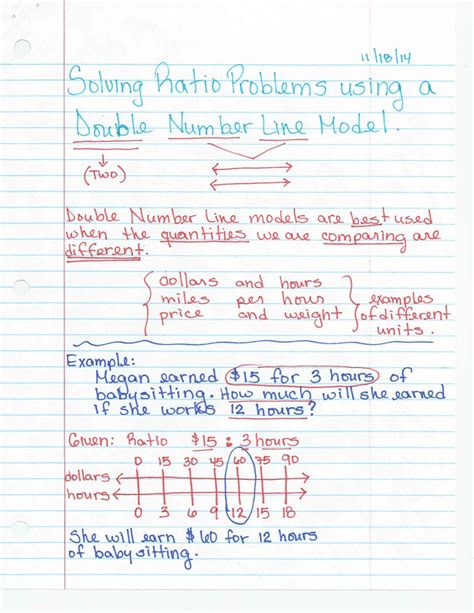 11/18/14
Solving Ratio Problems using a
Double Number Line Model.
(Two)
Double Number Line models are best used
when the quantities we are comparing are
different.
dollars and hours
miles per hour
price and weight
examples
of different
units.
Example:
Megan earned $15 for 3 hours of
babysitting. How much will she earned
if she works 12 hours?
Given: Ratio $15 : 3 hours
0 15 30 45 60 75 90
dollars
hours
0 3 6 9 12 15 18
She will earn $60 for 12 hours
of babysitting.